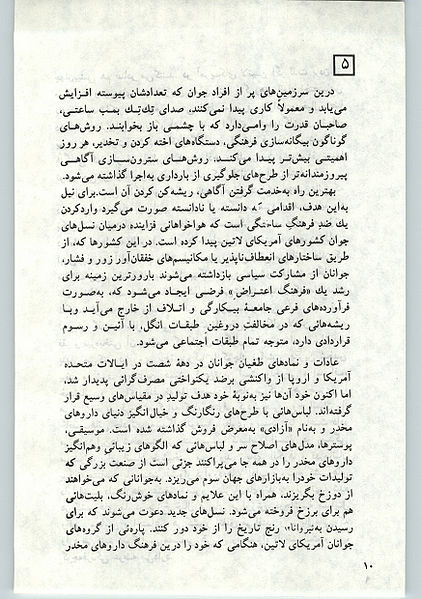 ۵
درین سرزمین‌های پر از افراد جوان که تعدادشان پیوسته افزایش
می‌یابد و معمولاً کاری پیدا نمی‌کنند، صدای تِك‌تِك بمب ساعتی،
صاحبان قدرت را وامی‌دارد که با چشمی باز بخوابند. روش‌های
گوناگون بیگانه‌سازی فرهنگی، دستگاه‌های اخته کردن و تخدیر، هر روز
اهمیتی بیش‌تر پیدا می‌کنند. روش‌های سترون‌سازی آگاهی
پیروزمندانه‌تر از طرح‌های جلوگیری از بارداری به‌اجرا گذاشته می‌شود.
بهترین راه به‌خدمت گرفتن آگاهی، ریشه‌کن کردن آن است. برای نیل
به‌این هدف، اقدامی که دانسته یا نادانسته صورت می‌گیرد واردکردن
یك ضدِ فرهنگِ ساختگی است که هواخواهانی فزاینده درمیان نسل‌های
جوان کشورهای آمریکای لاتین پیدا کرده است. در این کشورها که، از
طریق ساختارهای انعطاف‌ناپذیر یا مکانیسم‌های خفقان‌آور زور و فشار،
جوانان از مشارکت سیاسی بازداشته می‌شوند بارورترین زمینه برای
رشد یك «فرهنگ اعتراضِ» فرضی ایجاد می‌شود که، به‌صورت
فرآورده‌های فرعی جامعهٔ بیکارگی و اتلاف از خارج می‌آید و با
ریشه‌هائی که در مخالفتِ دروغینِ طبقات انگل، با آئین و رسوم
قراردادی دارد، متوجه تمام طبقات اجتماعی می‌شود.
عادات و نمادهای طغیان جوانان در دههٔ شصت در ایالات متحده
آمریکا و اروپا از واکنشی برضد یکنواختی مصرف‌گرائی پدیدار شد،
اما اکنون خود آن‌ها نیز به‌نوبهٔ خود هدف تولید در مقیاس‌های وسیع قرار
گرفته‌اند. لباس‌هائی با طرح‌های رنگارنگ و خیال‌انگیز دنیای داروهای
مخدر و به‌نام «آزادی» به‌معرض فروش گذاشته شده است. موسیقی،
پوسترها، مدل‌های اصلاح سر و لباس‌هائی که الگوهای زیبائی وهم‌انگیز
داروهای مخدر را در همه جا می‌پراکنند جزئی است از صنعت بزرگی که
تولیدات خودرا به‌بازارهای جهان سوم می‌ریزد. به‌جوانانی که می‌خواهند
از دوزخ بگریزند، همراه با این علایم و نمادهای خوش‌رنگ، بلیت‌هائی
هم برای برزخ فروخته می‌شود. نسل‌های جدید دعوت می‌شوند که برای
رسیدن به‌نیروانا رنجِ تاریخ را از خود دور کنند. پاره‌ئی از گروه‌های
جوانان آمریکای لاتین، هنگامی که خود را درین فرهنگ داروهای مخدر
۱۰